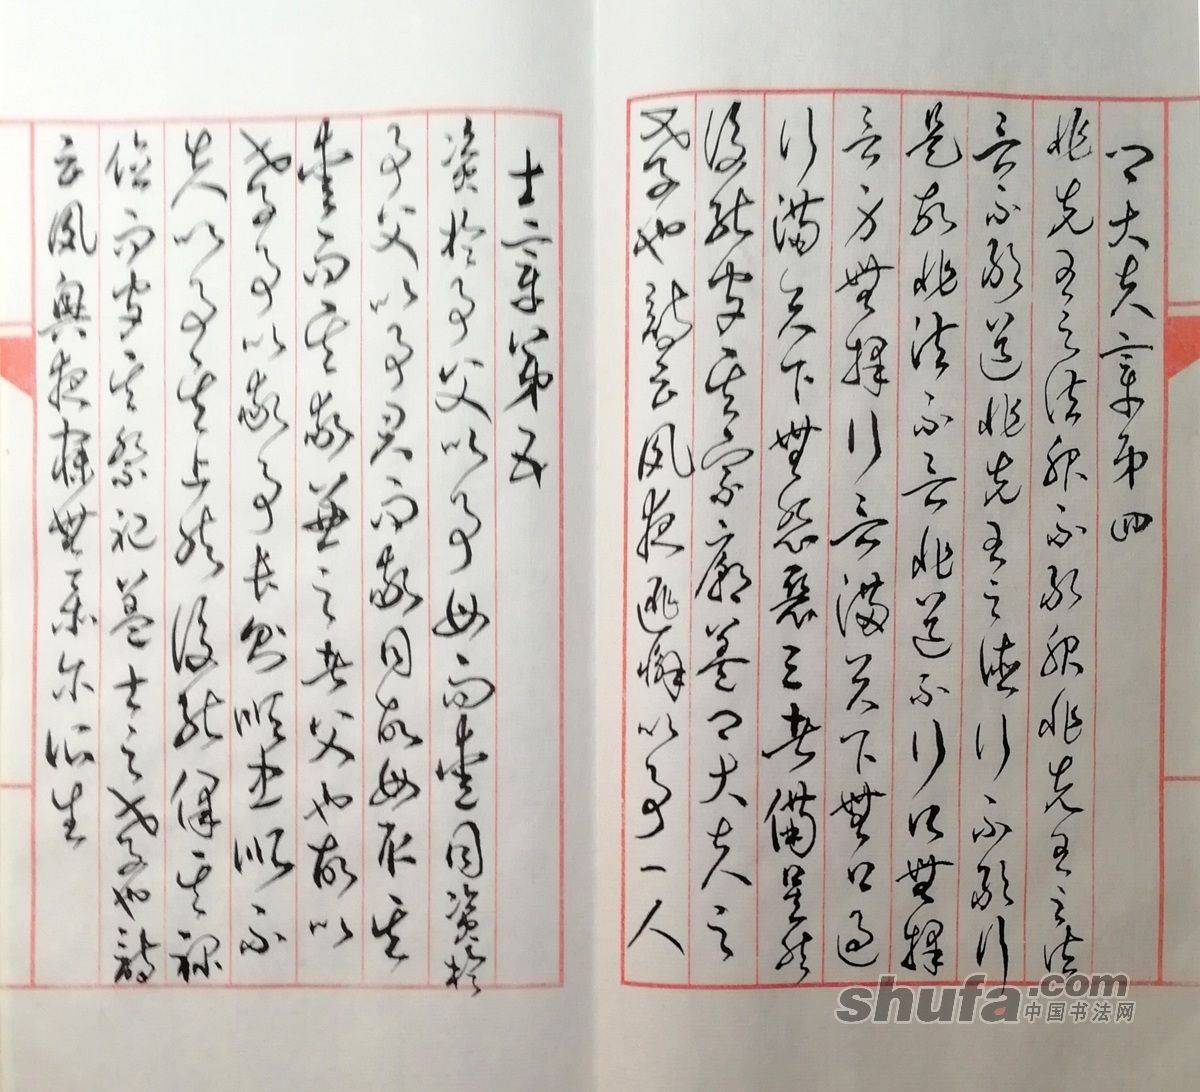 卿大夫章第四
非先王之法服不敢服非先王之法
言不敢道非先王之德行不敢行
是故非法不言非道不行口無擇
言身無擇行言滿天下無口過
行滿天下無怨惡三者備矣然
後能守其宗廟蓋卿大夫之
孝也詩云夙夜匪懈以事一人
士章第五
資於事父以事母而愛同資於
事父以事君而敬同故母取其
愛而其敬兼之者父也故以
孝事以敬事長則順忠順不
失以事其上然後能保其祿
位而守其祭祀蓋士之孝也詩
云夙興夜寐無忝尔所生
shufa.com
中国书法网